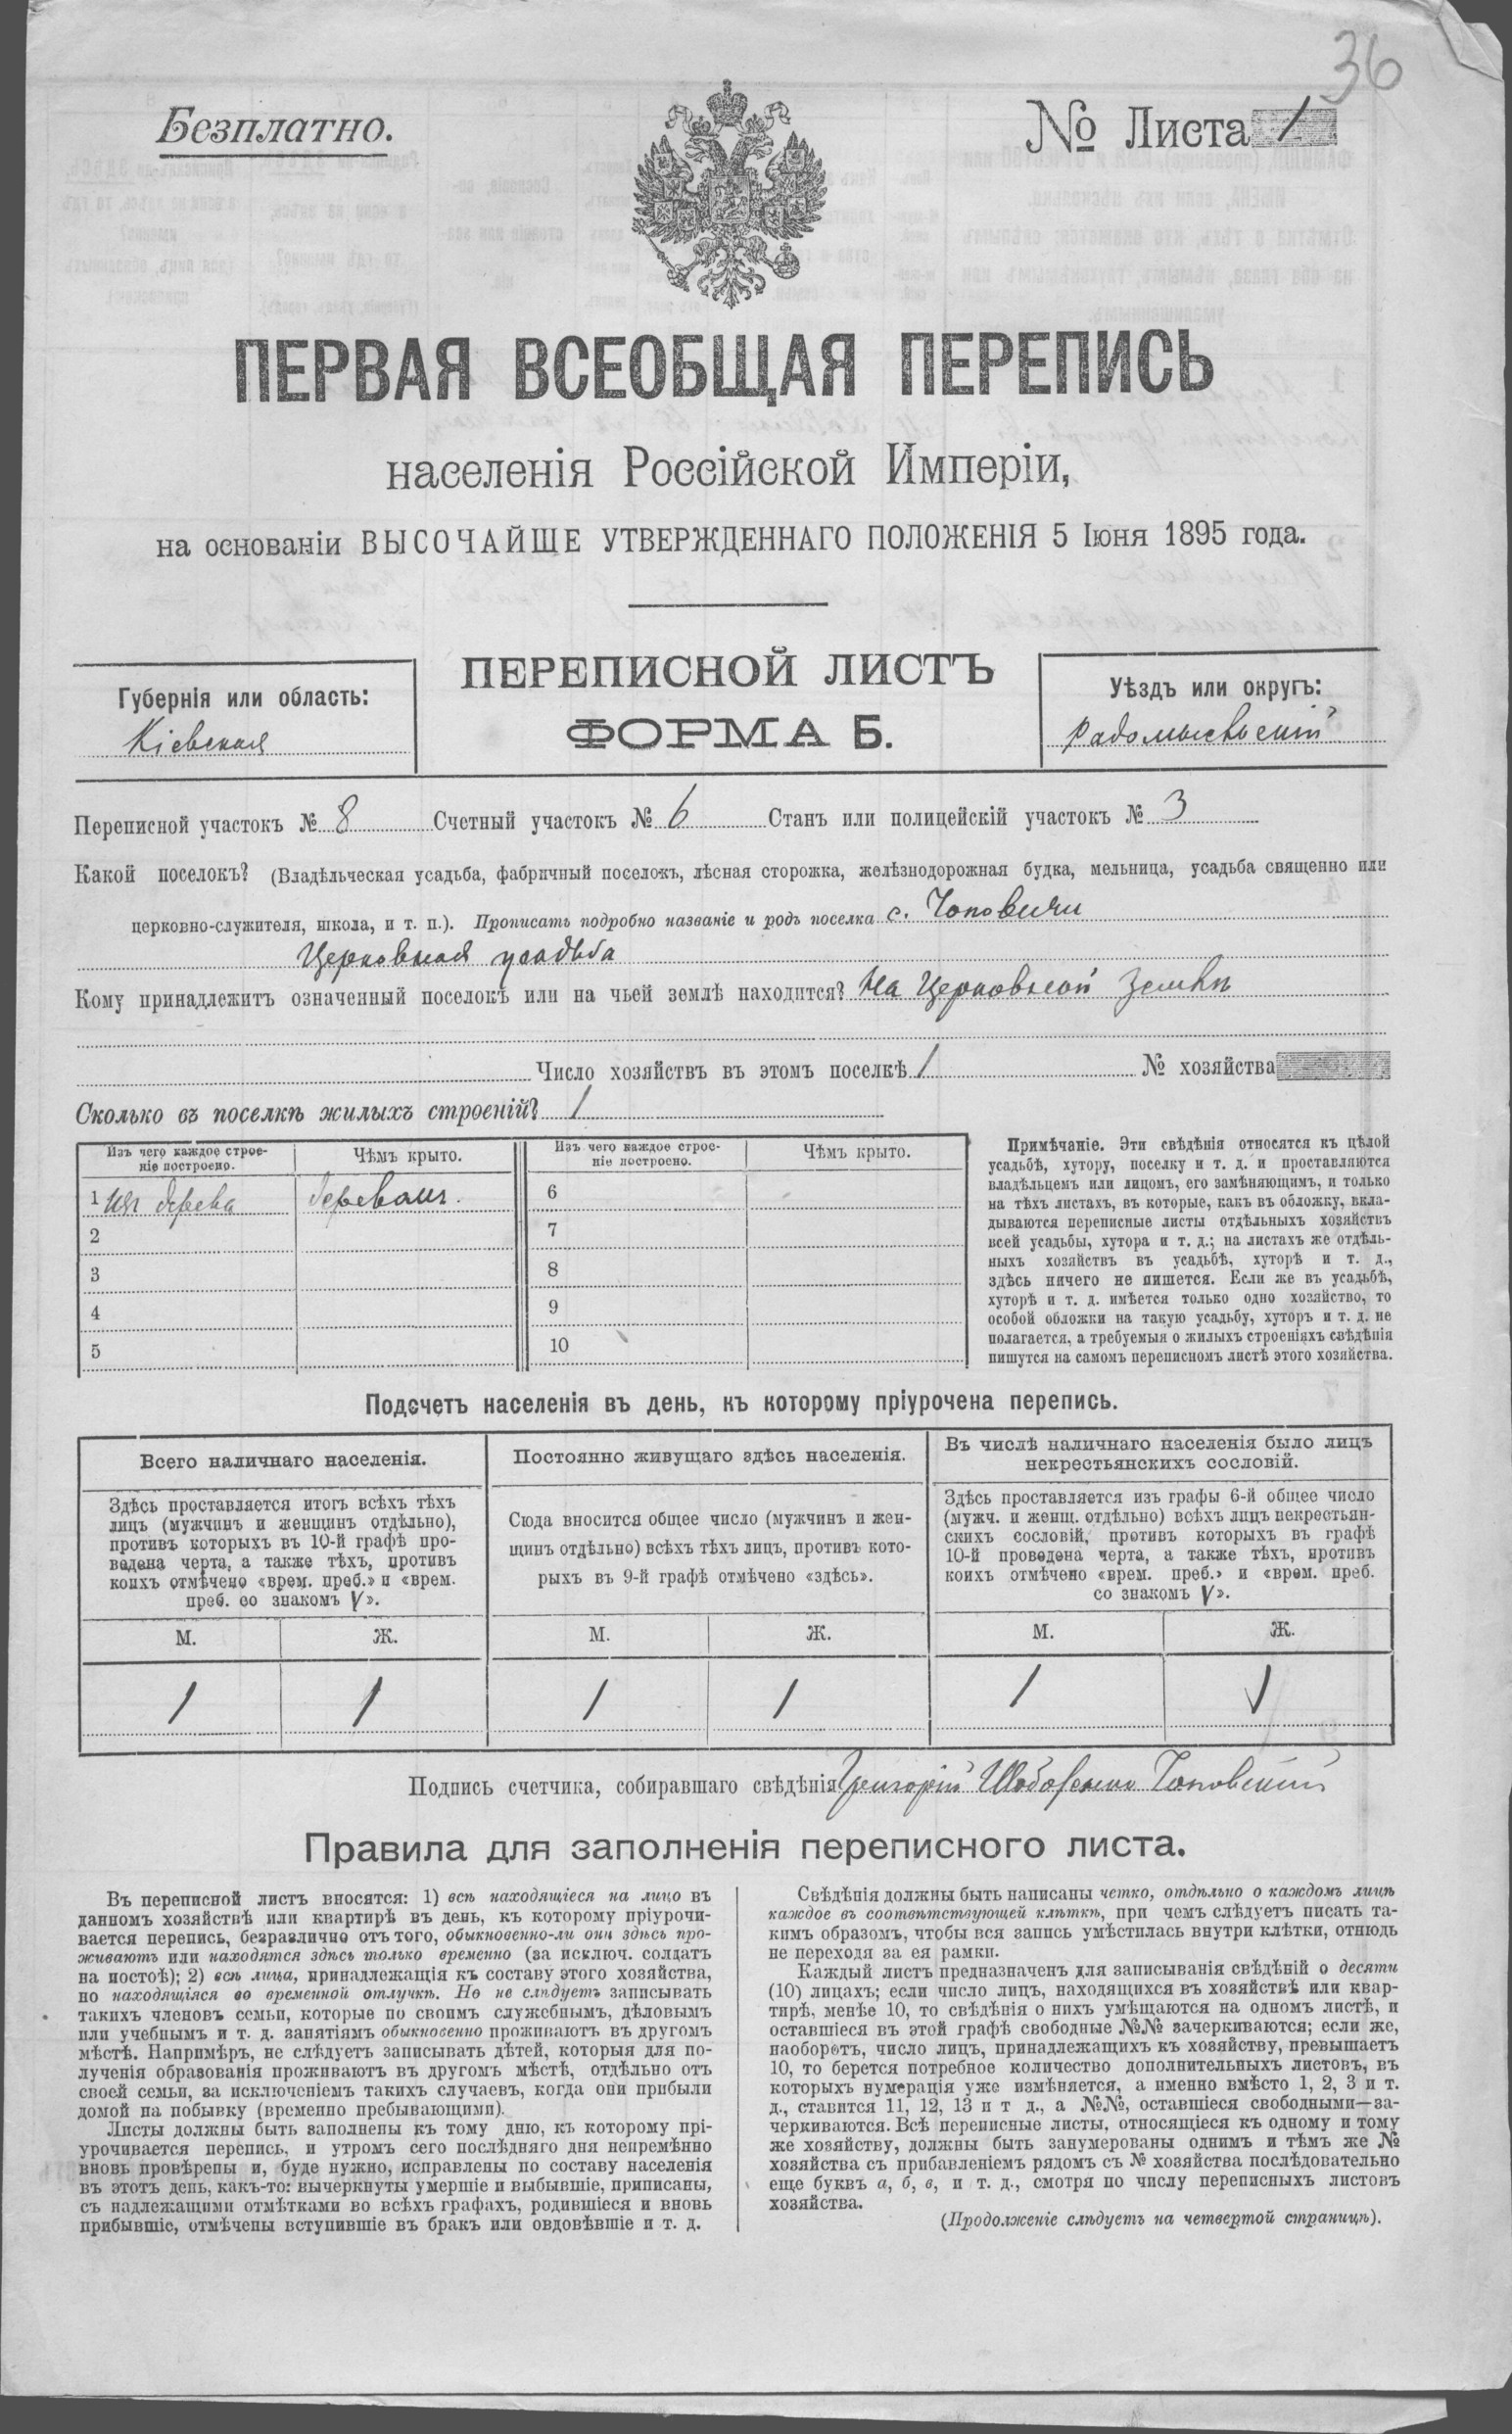 36
Безплатно.
№ Листа 1
ПЕРВАЯ ВСЕОБЩАЯ ПЕРЕПИСЬ
населенія Россійской Имперіи,
на основаніи ВЫСОЧАЙШЕ УТВЕРЖДЕННАГО ПОЛОЖЕНІЯ 5 Іюня 1895 года.
ПЕРЕПИСНОЙ ЛИСТЪ
ФОРМА Б.
Губернія или область:
Кіевская
Уѣздъ или округъ:
Радомысльскій
Переписной участокъ № 8 Счетный участокъ № 6 Станъ или полицейскій участокъ № 3
Какой поселокъ? (Владѣльческая усадьба, фабричный поселокъ, лѣсная сторожка, желѣзнодорожная будка, мельница, усадьба священно или
церковно-служителя, школа, и т. п.). Прописать подробно названіе и родъ поселка с. Чоповичи
Церковная усадьба
Кому принадлежитъ означенный поселокъ или на чьей землѣ находится? На Церковной землѣ
Число хозяйствъ въ этомъ поселкѣ 1 № хозяйства
Сколько въ поселкѣ жилыхъ строеній? 1
Изъ чего каждое строе-
ніе построено.
Чѣмъ крыто.
Изъ чего каждое строе-
ніе построено.
Чѣмъ крыто.
1 Изъ дерева
6
2
7
3
8
4
9
5
10
Примѣчаніе. Эти свѣдѣнія относятся къ цѣлой
усадьбѣ, хутору, поселку и т. д. и проставляются
владѣльцемъ или лицомъ, его замѣняющимъ, и только
на тѣхъ листахъ, въ которые, какъ въ обложку, вкла-
дываются переписные листы отдѣльныхъ хозяйствъ
всей усадьбы, хутора и т. д.; на листахъ же отдѣль-
ныхъ хозяйствъ въ усадьбѣ, хуторѣ и т. д.,
здѣсь ничего не пишется. Если же въ усадьбѣ,
хуторѣ и т. д. имѣется только одно хозяйство, то
особой обложки на такую усадьбу, хуторъ и т. д. не
полагается, а требуемыя о жилыхъ строеніяхъ свѣдѣнія
пишутся на самомъ переписномъ листѣ этого хозяйства.
Подсчетъ населенія въ день, къ которому пріурочена перепись.
Всего наличнаго населенія.
Здѣсь проставляется итогъ всѣхъ тѣхъ
лицъ (мужчинъ и женщинъ отдѣльно),
противъ которыхъ въ 10-й графѣ про-
ведена черта, а также тѣхъ, противъ
коихъ отмѣчено «врем. преб.» и «врем.
преб. со знакомъ V».
Постоянно живущаго здѣсь населенія.
Сюда вносится общее число (мужчинъ и жен-
щинъ отдѣльно) всѣхъ тѣхъ лицъ, противъ кото-
рыхъ въ 9-й графѣ отмѣчено «здѣсь».
Въ числѣ наличнаго населенія было лицъ
некрестьянскихъ сословій.
Здѣсь проставляется изъ графы 6-й общее число
(мужч. и женщ. отдѣльно) всѣхъ лицъ некрестьян-
скихъ сословій, противъ которыхъ въ графѣ
10-й проведена черта, а также тѣхъ, противъ
коихъ отмѣчено «врем. преб.» и «врем. преб.
со знакомъ V».
М. Ж. М. Ж. М. Ж.
1 1 1 1 1 1
Подпись счетчика, собиравшаго свѣдѣнія Григорій
Правила для заполненія переписного листа.
Въ переписной листъ вносятся: 1) всѣ находящіеся на лицо въ
данномъ хозяйствѣ или квартирѣ въ день, къ которому пріурочи-
вается перепись, безразлично отъ того, обыкновенно-ли они здѣсь про-
живаютъ или находятся здѣсь только временно (за исключ. солдатъ
на постоѣ); 2) всѣ лица, принадлежащія къ составу этого хозяйства,
но находящіяся во временной отлучкѣ. Но не слѣдуетъ записывать
такихъ членовъ семьи, которые по своимъ служебнымъ, дѣловымъ
или учебнымъ и т. д. занятіямъ обыкновенно проживаютъ въ другомъ
мѣстѣ. Напримѣръ, не слѣдуетъ записывать дѣтей, которыя для по-
лученія образованія проживаютъ въ другомъ мѣстѣ, отдѣльно отъ
своей семьи, за исключеніемъ такихъ случаевъ, когда они прибыли
домой на побывку (временно пребывающими).
Листы должны быть заполнены къ тому дню, къ которому прі-
урочивается перепись, и утромъ сего послѣдняго дня непремѣнно
вновь провѣрены и, буде нужно, исправлены по составу населенія
въ этотъ день, какъ-то: вычеркнуты умершіе и выбывшіе, приписаны,
съ надлежащими отмѣтками во всѣхъ графахъ, родившіеся и вновь
прибывшіе, отмѣчены вступившіе въ бракъ или овдовѣвшіе и т. д.
Свѣдѣнія должны быть написаны четко, отдѣльно о каждомъ лицѣ
каждое въ соотвѣтствующей клѣткѣ, при чемъ слѣдуетъ писать та-
кимъ образомъ, чтобы вся запись умѣстилась внутри клѣтки, отнюдь
не переходя за ея рамки.
Каждый листъ предназначенъ для записыванія свѣдѣній о десяти
(10) лицахъ; если число лицъ, находящихся въ хозяйствѣ или квар-
тирѣ, менѣе 10, то свѣдѣнія о нихъ умѣщаются на одномъ листѣ, и
оставшіеся въ этой графѣ свободные №№ зачеркиваются; если же,
наоборотъ, число лицъ, принадлежащихъ къ хозяйству, превышаетъ
10, то берется потребное количество дополнительныхъ листовъ, въ
которыхъ нумерація уже измѣняется, а именно вмѣсто 1, 2, 3 и т.
д., ставится 11, 12, 13 и т д., а №№, оставшіеся свободными—за-
черкиваются. Всѣ переписные листы, относящіеся къ одному и тому
же хозяйству, должны быть занумерованы однимъ и тѣмъ же №
хозяйства съ прибавленіемъ рядомъ съ № хозяйства послѣдовательно
еще буквъ а, б, в, и т. д., смотря по числу переписныхъ листовъ
хозяйства.
(Продолженіе слѣдуетъ на четвертой страницѣ).